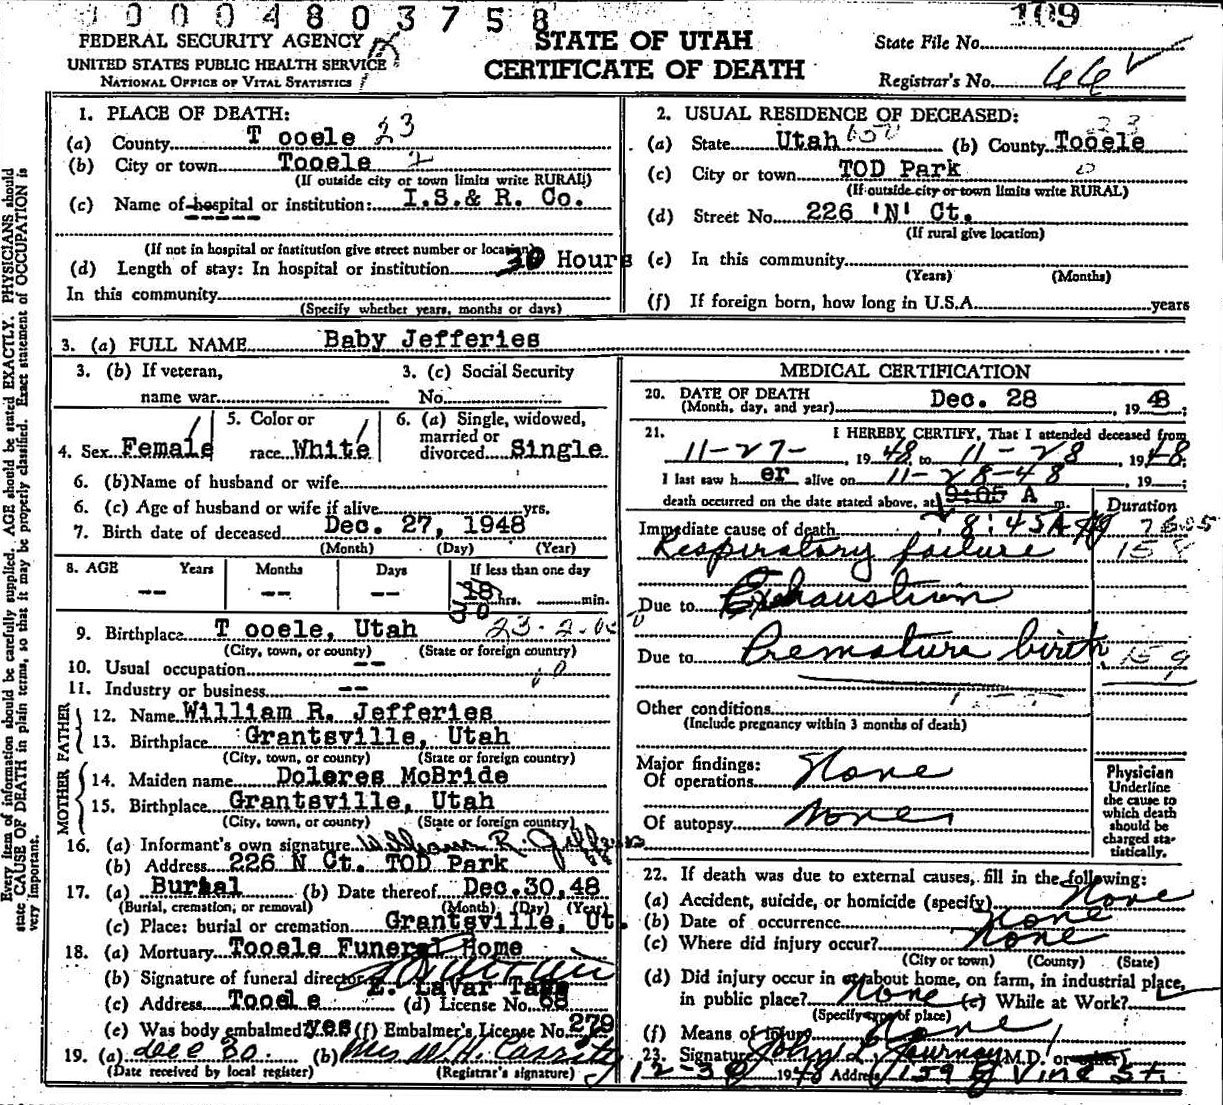 00004803758
109
FEDERAL SECURITY AGENCY
UNITED STATES PUBLIC HEALTH SERVICE
NATIONAL OFFICE OF VITAL STATISTICS
STATE OF UTAH
CERTIFICATE OF DEATH
State File No.
Registrar's No. 66
Every item of information should be carefully supplied. AGE should be stated EXACTLY. PHYSICIANS should
state CAUSE OF DEATH in plain terms, so that it may be properly classified. Exact statement of OCCUPATION is
very important.
1. PLACE OF DEATH:
(a) County Tooele 23
(b) City or town Tooele 2
(If outside city or town limits write RURAL)
(c) Name of hospital or institution: I.S.& R. Co.
(If not in hospital or institution give street number or location)
(d) Length of stay: In hospital or institution 30 Hours
In this community
(Specify whether years, months or days)
2. USUAL RESIDENCE OF DECEASED:
(a) State Utah 650 (b) County Tooele 23
(c) City or town TOD Park
(If outside city or town limits write RURAL)
(d) Street No. 226 'N' Ct.
(If rural give location)
(e) In this community
(Years) (Months)
(f) If foreign born, how long in U.S.A. years
3. (a) FULL NAME Baby Jefferies
3. (b) If veteran,
name war
3. (c) Social Security
No.
4. Sex Female
5. Color or
race White
6. (a) Single, widowed,
married or
divorced Single
6. (b) Name of husband or wife
6. (c) Age of husband or wife if alive yrs.
7. Birth date of deceased Dec. 27, 1948
(Month) (Day) (Year)
8. AGE Years Months Days If less than one day
-- -- -- 18 hrs. min.
30
9. Birthplace Tooele, Utah
(City, town, or county) (State or foreign country)
10. Usual occupation --
11. Industry or business --
FATHER
12. Name William R. Jefferies
13. Birthplace Grantsville, Utah
(City, town, or county) (State or foreign country)
MOTHER
14. Maiden name Dolores McBride
15. Birthplace Grantsville, Utah
(City, town, or county) (State or foreign country)
16. (a) Informant's own signature William R. Jefferies
(b) Address 226 N Ct. TOD Park
17. (a) Burial (b) Date thereof Dec.30,48
(Burial, cremation, or removal) (Month) (Day) (Year)
(c) Place: burial or cremation Grantsville, Ut.
18. (a) Mortuary Tooele Funeral Home
(b) Signature of funeral director
E. LaVar Tate
(c) Address Tooele (d) License No. 68
(e) Was body embalmed? yes (f) Embalmer's License No. 279
19. (a) dec 30. (b) Mrs W.H.
(Date received by local register) (Registrar's signature)
MEDICAL CERTIFICATION
20. DATE OF DEATH
(Month, day, and year) Dec. 28, 1948;
21. I HEREBY CERTIFY, That I attended deceased from
11-27-, 1948, to 11-28, 1948.
I last saw h er alive on 11-28-48, 19 ;
death occurred on the date stated above, at 9:05 A m.
Duration
Immediate cause of death 8:45A
Respiratory failure
158
Due to Exhaustion
Due to Premature birth
159
Other conditions
(Include pregnancy within 3 months of death)
Major findings:
Of operations None
Of autopsy None
Physician
Underline
the cause to
which death
should be
charged sta-
tistically.
22. If death was due to external causes, fill in the following:
(a) Accident, suicide, or homicide (specify) None
(b) Date of occurrence None
(c) Where did injury occur? None
(City or town) (County) (State)
(d) Did injury occur in or about home, on farm, in industrial place,
in public place? None (e) While at Work?
(Specify type of place)
(f) Means of injury None
23. Signature John L. M.D. or other)
12-30 1948 Address 159 E Vine St.